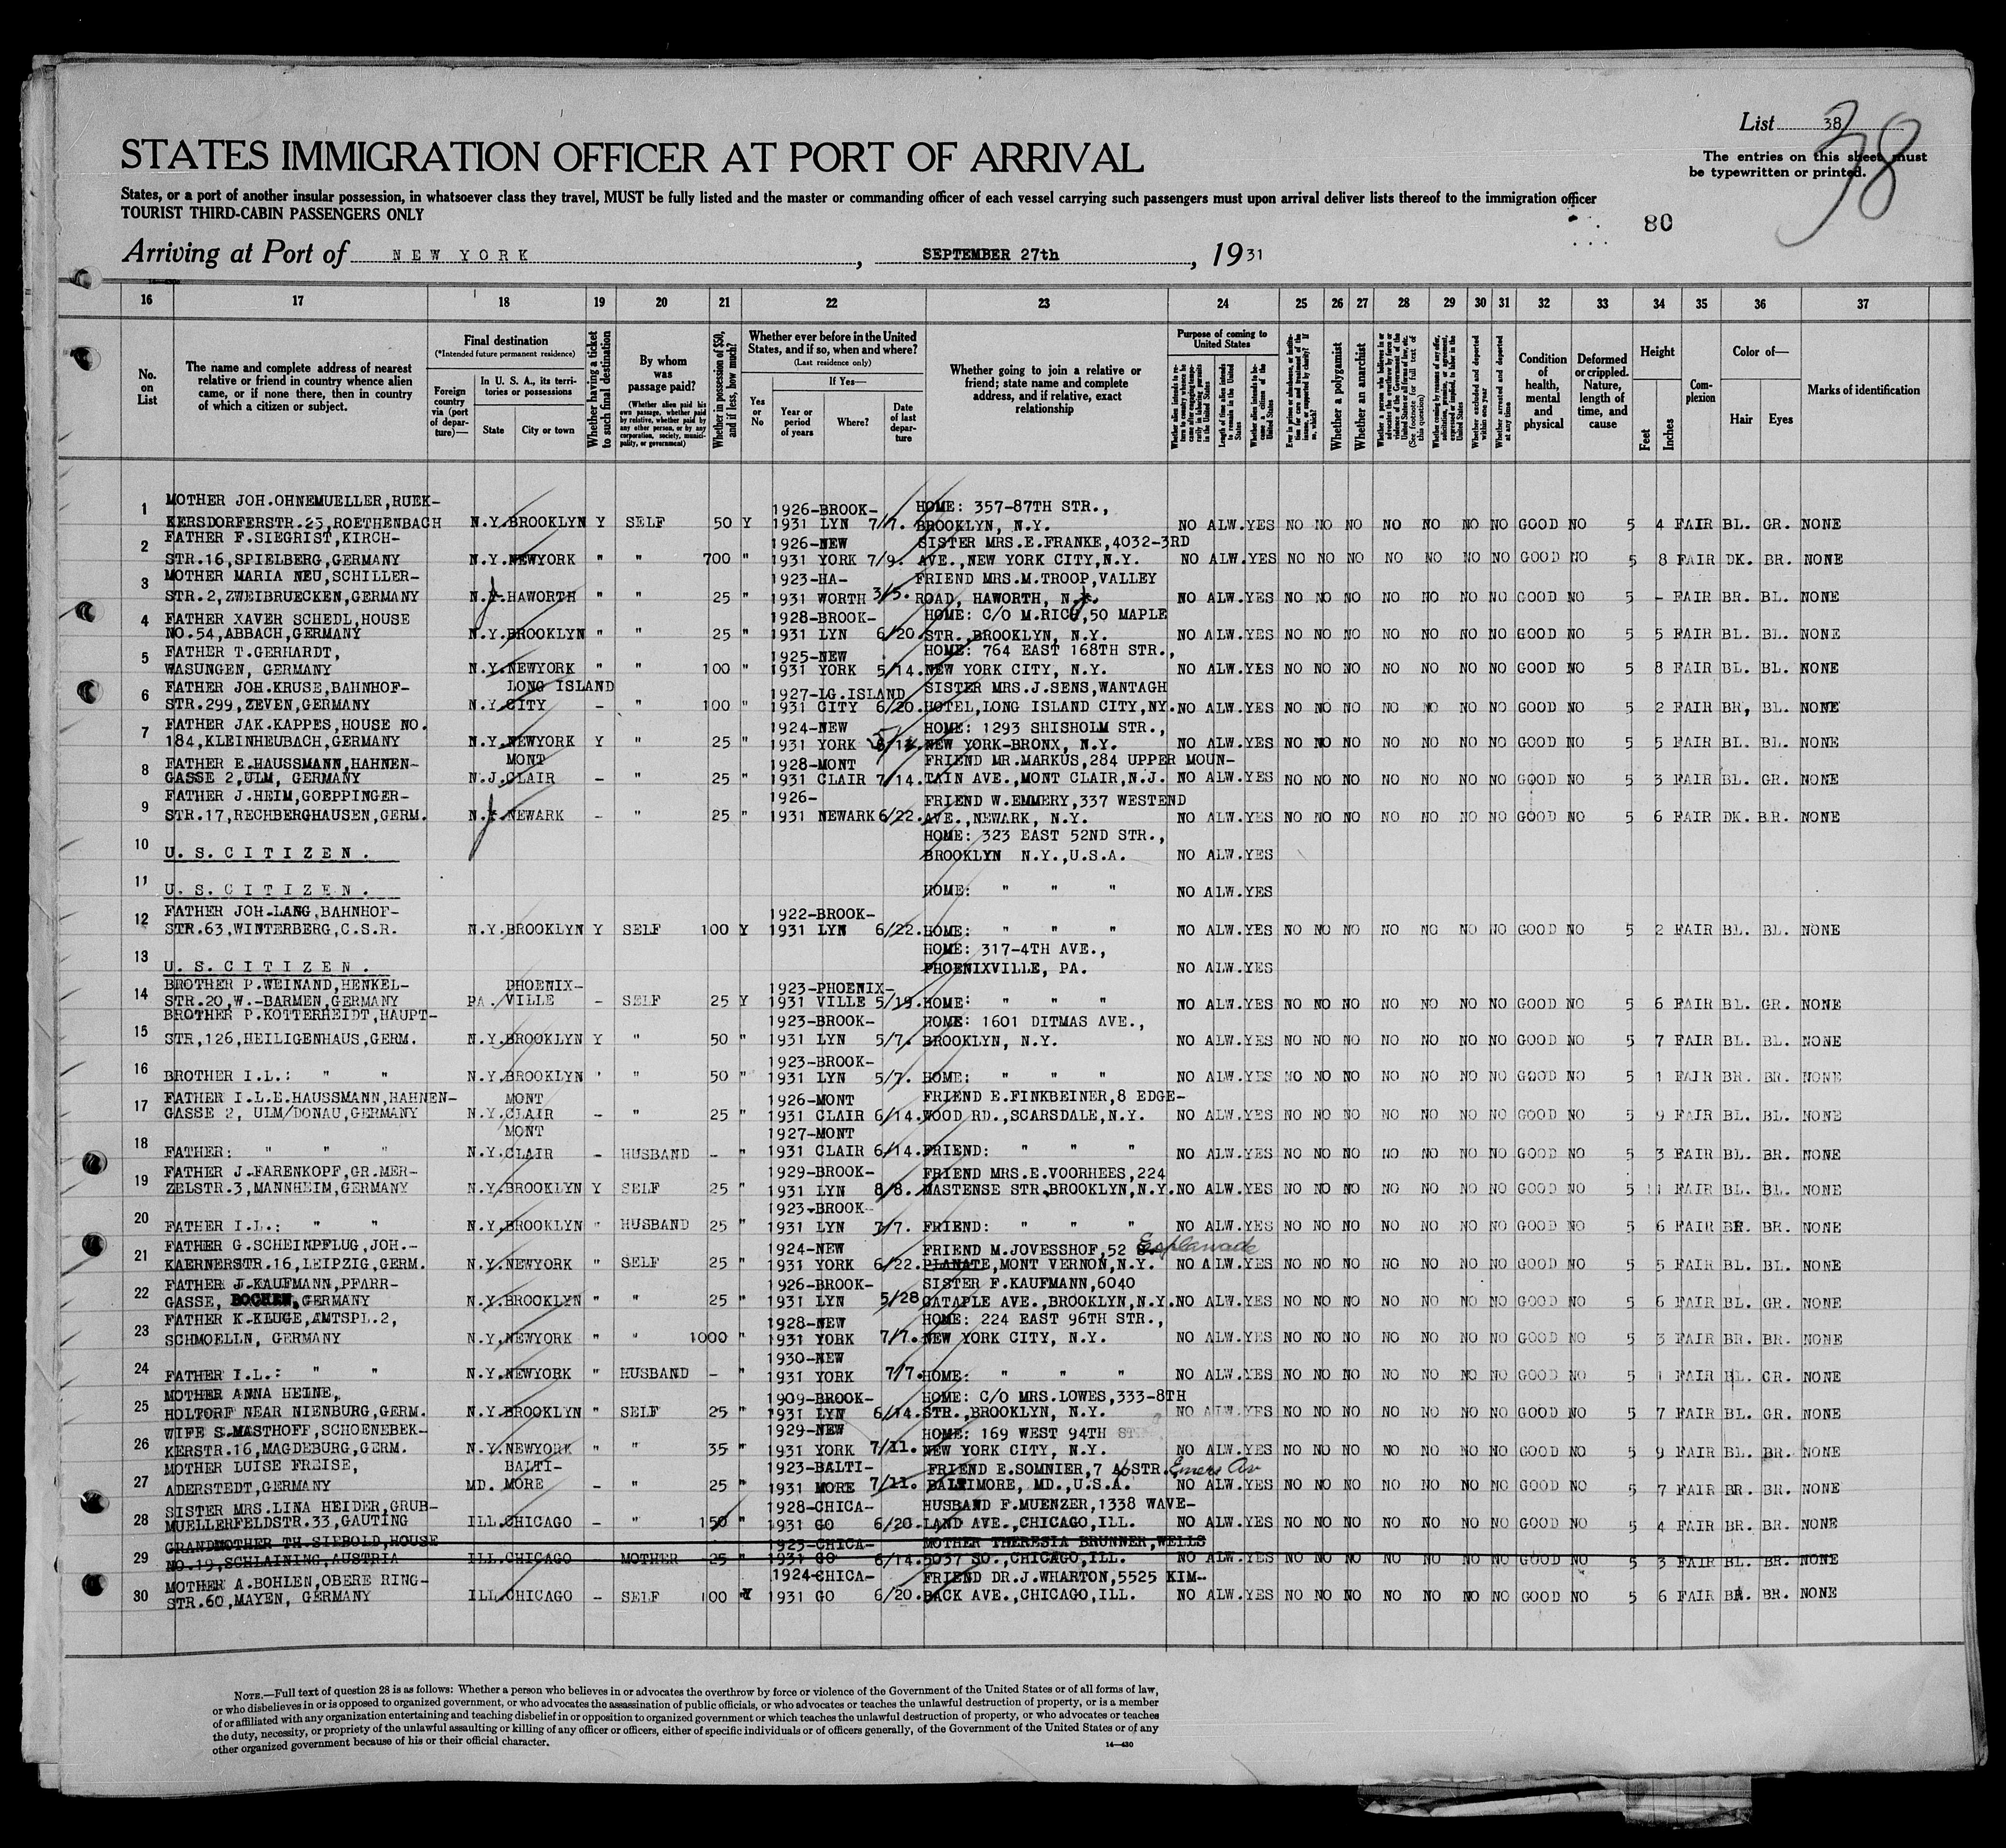 List 38
38
STATES IMMIGRATION OFFICER AT PORT OF ARRIVAL
The entries on this sheet must
be typewritten or printed.
States, or a port of another insular possession, in whatsoever class they travel, MUST be fully listed and the master or commanding officer of each vessel carrying such passengers must upon arrival deliver lists thereof to the immigration officer
TOURIST THIRD-CABIN PASSENGERS ONLY
80
Arriving at Port of NEW YORK, SEPTEMBER 27th, 1931
16 17 18 19 20 21 22 23 24 25 26 27 28 29 30 31 32 33 34 35 36 37
No. on List
The name and complete address of nearest relative or friend in country whence alien came, or if none there, then in country of which a citizen or subject.
Final destination
(*Intended future permanent residence)
Foreign country via (port of departure)—
In U. S. A., its territories or possessions
State
City or town
Whether having a ticket to such final destination
By whom was passage paid?
(Whether alien paid his own passage, whether paid by relative, whether paid by any other person, or by any corporation, society, municipality, or government)
Whether in possession of $50, and if less, how much?
Whether ever before in the United States, and if so, when and where?
(Last residence only)
Yes or No
If Yes—
Year or period of years
Where?
Date of last departure
Whether going to join a relative or friend; state name and complete address, and if relative, exact relationship
Purpose of coming to United States
Length of time alien intends to remain in the United States
Whether alien intends to become a citizen of the United States
Whether a polygamist
Whether an anarchist
(See footnote for full text of this question)
Whether excluded and deported within one year
Whether arrested and deported at any time
Condition of health, mental and physical
Deformed or crippled. Nature, length of time, and cause
Height
Feet
Inches
Complexion
Color of—
Hair
Eyes
Marks of identification
1 MOTHER JOH.OHNEMUELLER,RUEK- 1926-BROOK- HOME: 357-87TH STR.,
KERSDORFERSTR.25,ROETHENBACH N.Y. BROOKLYN Y SELF 50 Y 1931 LYN 7/7. BROOKLYN, N.Y. NO ALW. YES NO NO NO NO NO NO NO GOOD NO 5 4 FAIR BL. GR. NONE
2 FATHER F.SIEGRIST,KIRCH- 1926-NEW SISTER MRS.E.FRANKE,4032-3RD
STR.16,SPIELBERG,GERMANY N.Y. NEWYORK " " 700 " 1931 YORK 7/9. AVE.,NEW YORK CITY,N.Y. NO ALW. YES NO NO NO NO NO NO NO GOOD NO 5 8 FAIR DK. BR. NONE
3 MOTHER MARIA NEU,SCHILLER- 1923-HA- FRIEND MRS.M.TROOP,VALLEY
STR.2,ZWEIBRUECKEN,GERMANY N.J. HAWORTH " " 25 " 1931 WORTH 3/5. ROAD, HAWORTH, N.J. NO ALW. YES NO NO NO NO NO NO NO GOOD NO 5 - FAIR BR. BL. NONE
4 FATHER XAVER SCHEDL,HOUSE 1928-BROOK- HOME: C/O M.RICH,50 MAPLE
NO.54,ABBACH,GERMANY N.Y. BROOKLYN " " 25 " 1931 LYN 6/20. STR.,BROOKLYN, N.Y. NO ALW. YES NO NO NO NO NO NO NO GOOD NO 5 5 FAIR BL. BL. NONE
5 FATHER T.GERHARDT, 1925-NEW HOME: 764 EAST 168TH STR.,
WASUNGEN, GERMANY N.Y. NEWYORK " " 100 " 1931 YORK 5/14. NEW YORK CITY, N.Y. NO ALW. YES NO NO NO NO NO NO NO GOOD NO 5 8 FAIR BL. BL. NONE
6 FATHER JOH.KRUSE,BAHNHOF- LONG ISLAND 1927-LG.ISLAND SISTER MRS.J.SENS,WANTAGH
STR.299,ZEVEN,GERMANY N.Y. CITY - " 100 " 1931 CITY 6/20. HOTEL,LONG ISLAND CITY,NY. NO ALW. YES NO NO NO NO NO NO NO GOOD NO 5 2 FAIR BR, BL. NONE
7 FATHER JAK.KAPPES,HOUSE NO. 1924-NEW HOME: 1293 SHISHOLM STR.,
184,KLEINHEUBACH,GERMANY N.Y. NEWYORK Y " 25 " 1931 YORK NEW YORK-BRONX, N.Y. NO ALW. YES NO NO NO NO NO NO NO GOOD NO 5 5 FAIR BL. BL. NONE
8 FATHER E.HAUSSMANN,HAHNEN- MONT 1928-MONT FRIEND MR.MARKUS,284 UPPER MOUN-
GASSE 2,ULM, GERMANY N.J. CLAIR - " 25 " 1931 CLAIR 7/14. TAIN AVE.,MONT CLAIR,N.J. NO ALW. YES NO NO NO NO NO NO NO GOOD NO 5 3 FAIR BL. GR. NONE
9 FATHER J.HEIM,GOEPPINGER- 1926- FRIEND W.EMMERY,337 WESTEND
STR.17,RECHBERGHAUSEN,GERM. N.J. NEWARK - " 25 " 1931 NEWARK 6/22. AVE.,NEWARK, N.Y. NO ALW. YES NO NO NO NO NO NO NO GOOD NO 5 6 FAIR DK. BR. NONE
10 HOME: 323 EAST 52ND STR.,
U. S. C I T I Z E N . BROOKLYN N.Y.,U.S.A. NO ALW. YES
11 U. S. C I T I Z E N . HOME: " " " NO ALW. YES
12 FATHER JOH.LANG,BAHNHOF- 1922-BROOK-
STR.63,WINTERBERG,C.S.R. N.Y. BROOKLYN Y SELF 100 Y 1931 LYN 6/22. HOME: " " " NO ALW. YES NO NO NO NO NO NO NO GOOD NO 5 2 FAIR BL. BL. NONE
13 HOME: 317-4TH AVE.,
U. S. C I T I Z E N . PHOENIXVILLE, PA. NO ALW. YES
14 BROTHER P.WEINAND,HENKEL- PHOENIX- 1923-PHOENIX-
STR.20,W.-BARMEN,GERMANY PA. VILLE - SELF 25 Y 1931 VILLE 5/19. HOME: " " " NO ALW. YES NO NO NO NO NO NO NO GOOD NO 5 6 FAIR BL. GR. NONE
15 BROTHER P.KOTTERHEIDT,HAUPT- 1923-BROOK- HOME: 1601 DITMAS AVE.,
STR,126,HEILIGENHAUS,GERM. N.Y. BROOKLYN Y " 50 " 1931 LYN 5/7. BROOKLYN, N.Y. NO ALW. YES NO NO NO NO NO NO NO GOOD NO 5 7 FAIR BL. BL. NONE
16 1923-BROOK-
BROTHER I.L.: " " N.Y. BROOKLYN ' " 50 " 1931 LYN 5/7. HOME: " " " NO ALW. YES NO NO NO NO NO NO NO GOOD NO 5 1 FAIR BR. BR. NONE
17 FATHER I.L.E.HAUSSMANN,HAHNEN- MONT 1926-MONT FRIEND E.FINKBEINER,8 EDGE-
GASSE 2, ULM/DONAU,GERMANY N.Y. CLAIR - " 25 " 1931 CLAIR 6/14. WOOD RD.,SCARSDALE,N.Y. NO ALW. YES NO NO NO NO NO NO NO GOOD NO 5 9 FAIR BL. BL. NONE
18 MONT 1927-MONT
FATHER: " " " N.Y. CLAIR - HUSBAND - " 1931 CLAIR 6/14. FRIEND: " " " NO ALW. YES NO NO NO NO NO NO NO GOOD NO 5 3 FAIR BL. BR. NONE
19 FATHER J.FARENKOPF,GR.MER- 1929-BROOK- FRIEND MRS.E.VOORHEES,224
ZELSTR.3,MANNHEIM,GERMANY N.Y. BROOKLYN Y SELF 25 " 1931 LYN 8/8. MASTENSE STR.,BROOKLYN,N.Y. NO ALW. YES NO NO NO NO NO NO NO GOOD NO 5 11 FAIR BL. BL. NONE
20 1923-BROOK-
FATHER I.L.: " " N.Y. BROOKLYN " HUSBAND 25 " 1931 LYN 7/7. FRIEND: " " " NO ALW. YES NO NO NO NO NO NO NO GOOD NO 5 6 FAIR BR. BR. NONE
21 FATHER G.SCHEINPFLUG,JOH.- 1924-NEW FRIEND M.JOVESSHOF,52 Esplanade
KAERNERSTR.16,LEIPZIG,GERM. N.Y. NEWYORK " SELF 25 " 1931 YORK 6/22. PLANATE,MONT VERNON,N.Y. NO ALW. YES NO NO NO NO NO NO NO GOOD NO 5 5 FAIR BL. BL. NONE
22 FATHER J.KAUFMANN,PFARR- 1926-BROOK- SISTER F.KAUFMANN,6040
GASSE, BOCHEN,GERMANY N.Y. BROOKLYN " " 25 " 1931 LYN 5/28 CATAPLE AVE.,BROOKLYN,N.Y. NO ALW. YES NO NO NO NO NO NO NO GOOD NO 5 6 FAIR BL. GR. NONE
23 FATHER K.KLUGE,AMTSPL.2, 1928-NEW HOME: 224 EAST 96TH STR.,
SCHMOELLN, GERMANY N.Y. NEWYORK " " 1000 " 1931 YORK 7/7. NEW YORK CITY, N.Y. NO ALW. YES NO NO NO NO NO NO NO GOOD NO 5 3 FAIR BR. BR. NONE
24 1930-NEW
FATHER I.L.: " " N.Y. NEWYORK " HUSBAND - " 1931 YORK 7/7. HOME: " " " NO ALW. YES NO NO NO NO NO NO NO GOOD NO 5 1 FAIR BL. GR. NONE
25 MOTHER ANNA HEINE, 1909-BROOK- HOME: C/O MRS.LOWES,333-8TH
HOLTORF NEAR NIENBURG,GERM. N.Y. BROOKLYN " SELF 25 " 1931 LYN 6/14. STR.,BROOKLYN, N.Y. NO ALW. YES NO NO NO NO NO NO NO GOOD NO 5 7 FAIR BL. GR. NONE
26 WIFE S.MASTHOFF,SCHOENEBEK- 1929-NEW HOME: 169 WEST 94TH
KERSTR.16,MAGDEBURG,GERM. N.Y. NEWYORK " " 35 " 1931 YORK 7/11. NEW YORK CITY, N.Y. NO ALW. YES NO NO NO NO NO NO NO GOOD NO 5 9 FAIR BL. BR. NONE
27 MOTHER LUISE FREISE, BALTI- 1923-BALTI- FRIEND E.SOMNIER,7 STR.
ADERSTEDT,GERMANY MD. MORE - " 25 " 1931 MORE 7/11. BALTIMORE, MD.,U.S.A. NO ALW. YES NO NO NO NO NO NO NO GOOD NO 5 7 FAIR BR. BR. NONE
28 SISTER MRS.LINA HEIDER,GRUB- 1928-CHICA- HUSBAND F.MUENZER,1338 WAVE-
MUELLERFELDSTR.33,GAUTING ILL. CHICAGO - " 150 " 1931 GO 6/20. LAND AVE.,CHICAGO,ILL. NO ALW. YES NO NO NO NO NO NO NO GOOD NO 5 4 FAIR BR. BR. NONE
29 GRANDMOTHER TH.SIEBOLD,HOUSE 1923-CHICA- MOTHER THERESIA BRUNNER,WELLS
NO.19,SCHLAINING,AUSTRIA ILL. CHICAGO - MOTHER 25 " 1931 GO 6/14. 5037 SO.,CHICAGO,ILL. NO ALW. YES NO NO NO NO NO NO NO GOOD NO 5 3 FAIR BL. BR. NONE
30 MOTHER A.BOHLEN,OBERE RING- 1924-CHICA- FRIEND DR.J.WHARTON,5525 KIM-
STR.60,MAYEN, GERMANY ILL. CHICAGO - SELF 100 Y 1931 GO 6/20. BACK AVE.,CHICAGO,ILL. NO ALW. YES NO NO NO NO NO NO NO GOOD NO 5 6 FAIR BR. BR. NONE
NOTE.—Full text of question 28 is as follows: Whether a person who believes in or advocates the overthrow by force or violence of the Government of the United States or of all forms of law,
or who disbelieves in or is opposed to organized government, or who advocates the assassination of public officials, or who advocates or teaches the unlawful destruction of property, or is a member
of or affiliated with any organization entertaining and teaching disbelief in or opposition to organized government or which teaches the unlawful destruction of property, or who advocates or teaches
the duty, necessity, or propriety of the unlawful assaulting or killing of any officer or officers, either of specific individuals or of officers generally, of the Government of the United States or of any
other organized government because of his or their official character.
14—430